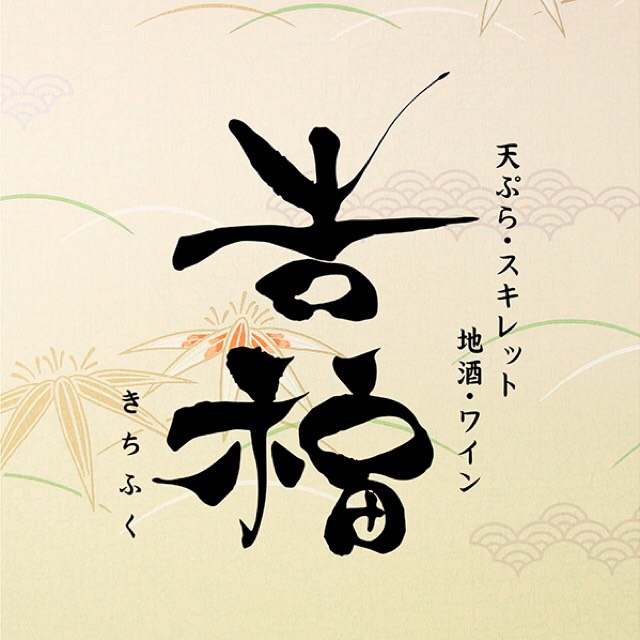 天ぷら・スキレット
地酒・ワイン
吉福
きちふく